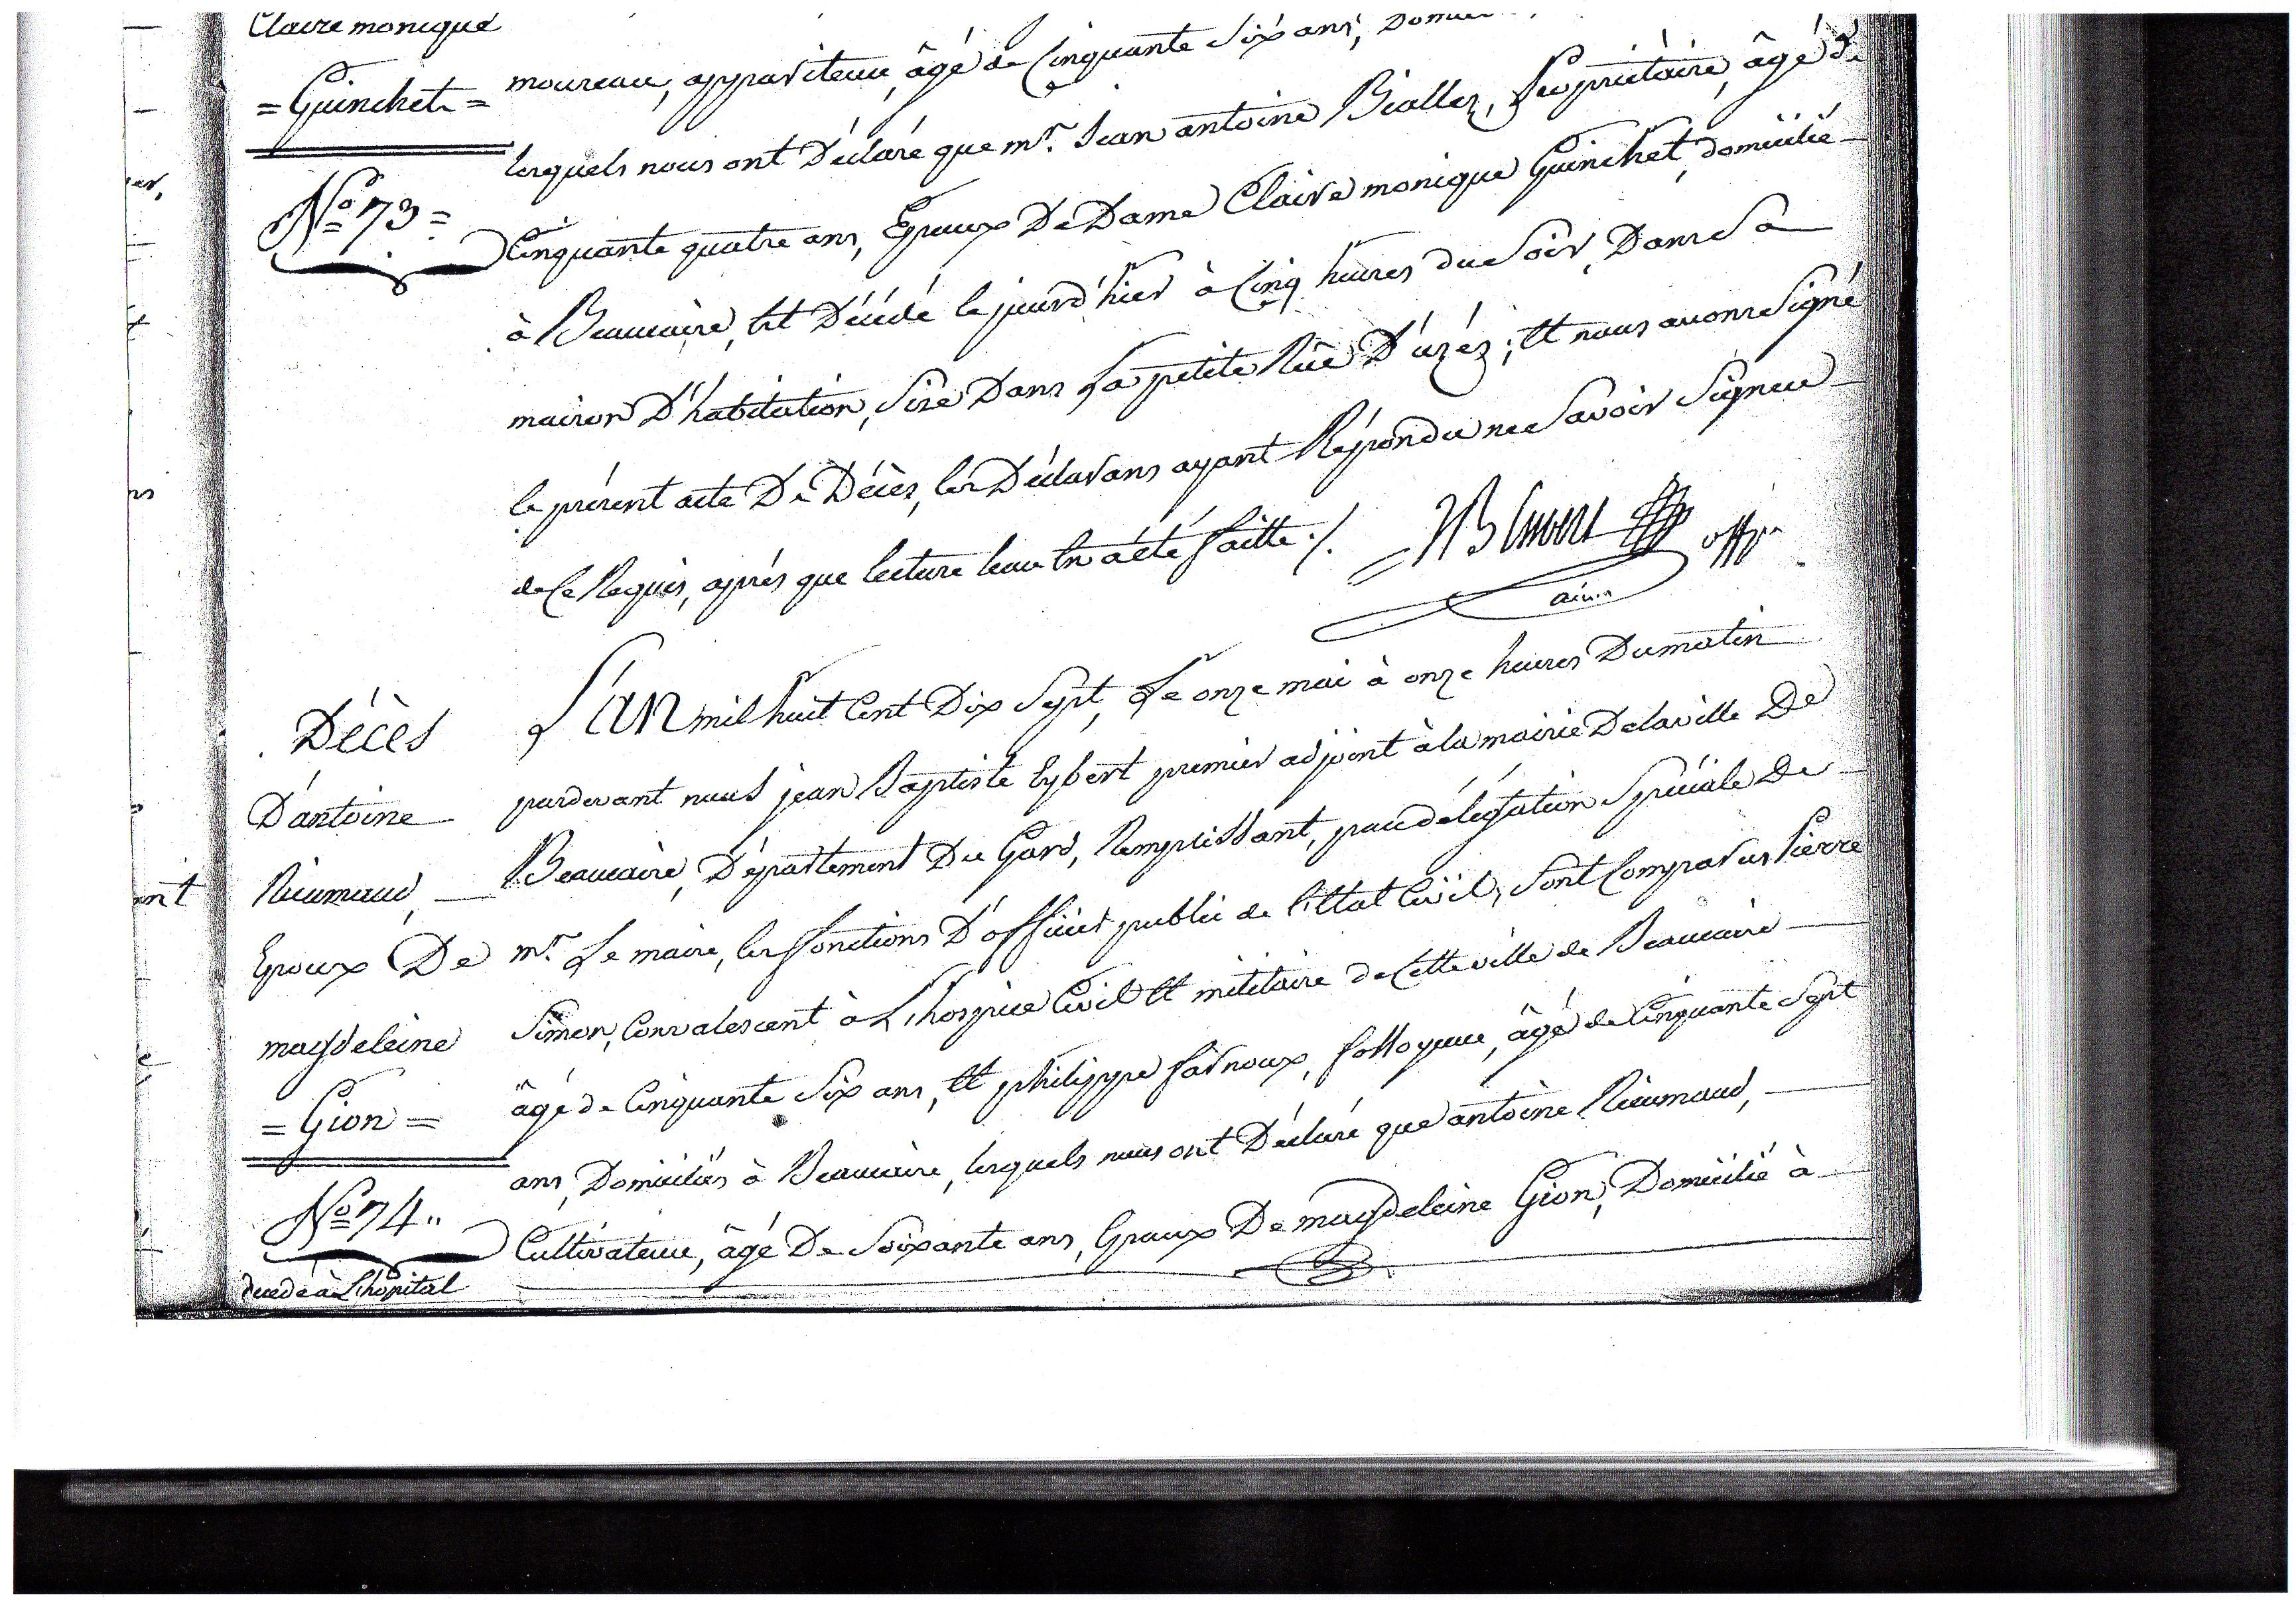 Claire monique
= Guinchet =
N.º 73 =
moureau, appariteur, âgé de Cinquante Six ans,
lesquels nous ont Déclaré que mr. Jean antoine Biallez, Propriétaire, âgé de
Cinquante quatre ans, Epoux De Dame Claire monique Guinchet, domicilié
à Beaucaire, Est Décédé le jourd'hier à Cinq heures du Soir, Dans Sa
maison D'habitation, Sise Dans La petite Rüe D'uzéz; Et nous avons Signé
le présent acte De Décès, les Déclarans ayant Répondu ne Savoir Signer
de Ce Requis, après que lecture leur En a été faitte ./.
Décès
D'antoine
Rieumaud,
Epoux De
magdeleine
= Gion =
N.º 74 "
décédé à L'hôpital
L'an mil huit Cent Dix Sept, Le onze mai à onze heures Du matin
pardevant nous jean Baptiste Eybert premier adjoint à la mairie De la ville De
Beaucaire, Département Du Gard, Remplissant, par délégation Spéciale De
mr. Le maire, les fonctions D'officier public de l'Etat Civil, Sont Comparus Pierre
Simon, Convalescent à L'hospice Civil Et militaire de Cette ville de Beaucaire
âgé de Cinquante Six ans, Et philippe farnoux, fossoyeur, âgé de Cinquante Sept
ans, Domiciliés à Beaucaire, lesquels nous ont Déclaré que antoine Rieumaud,
Cultivateur, âgé De Soixante ans, Epoux De magdeleine Gion, Domicilié à